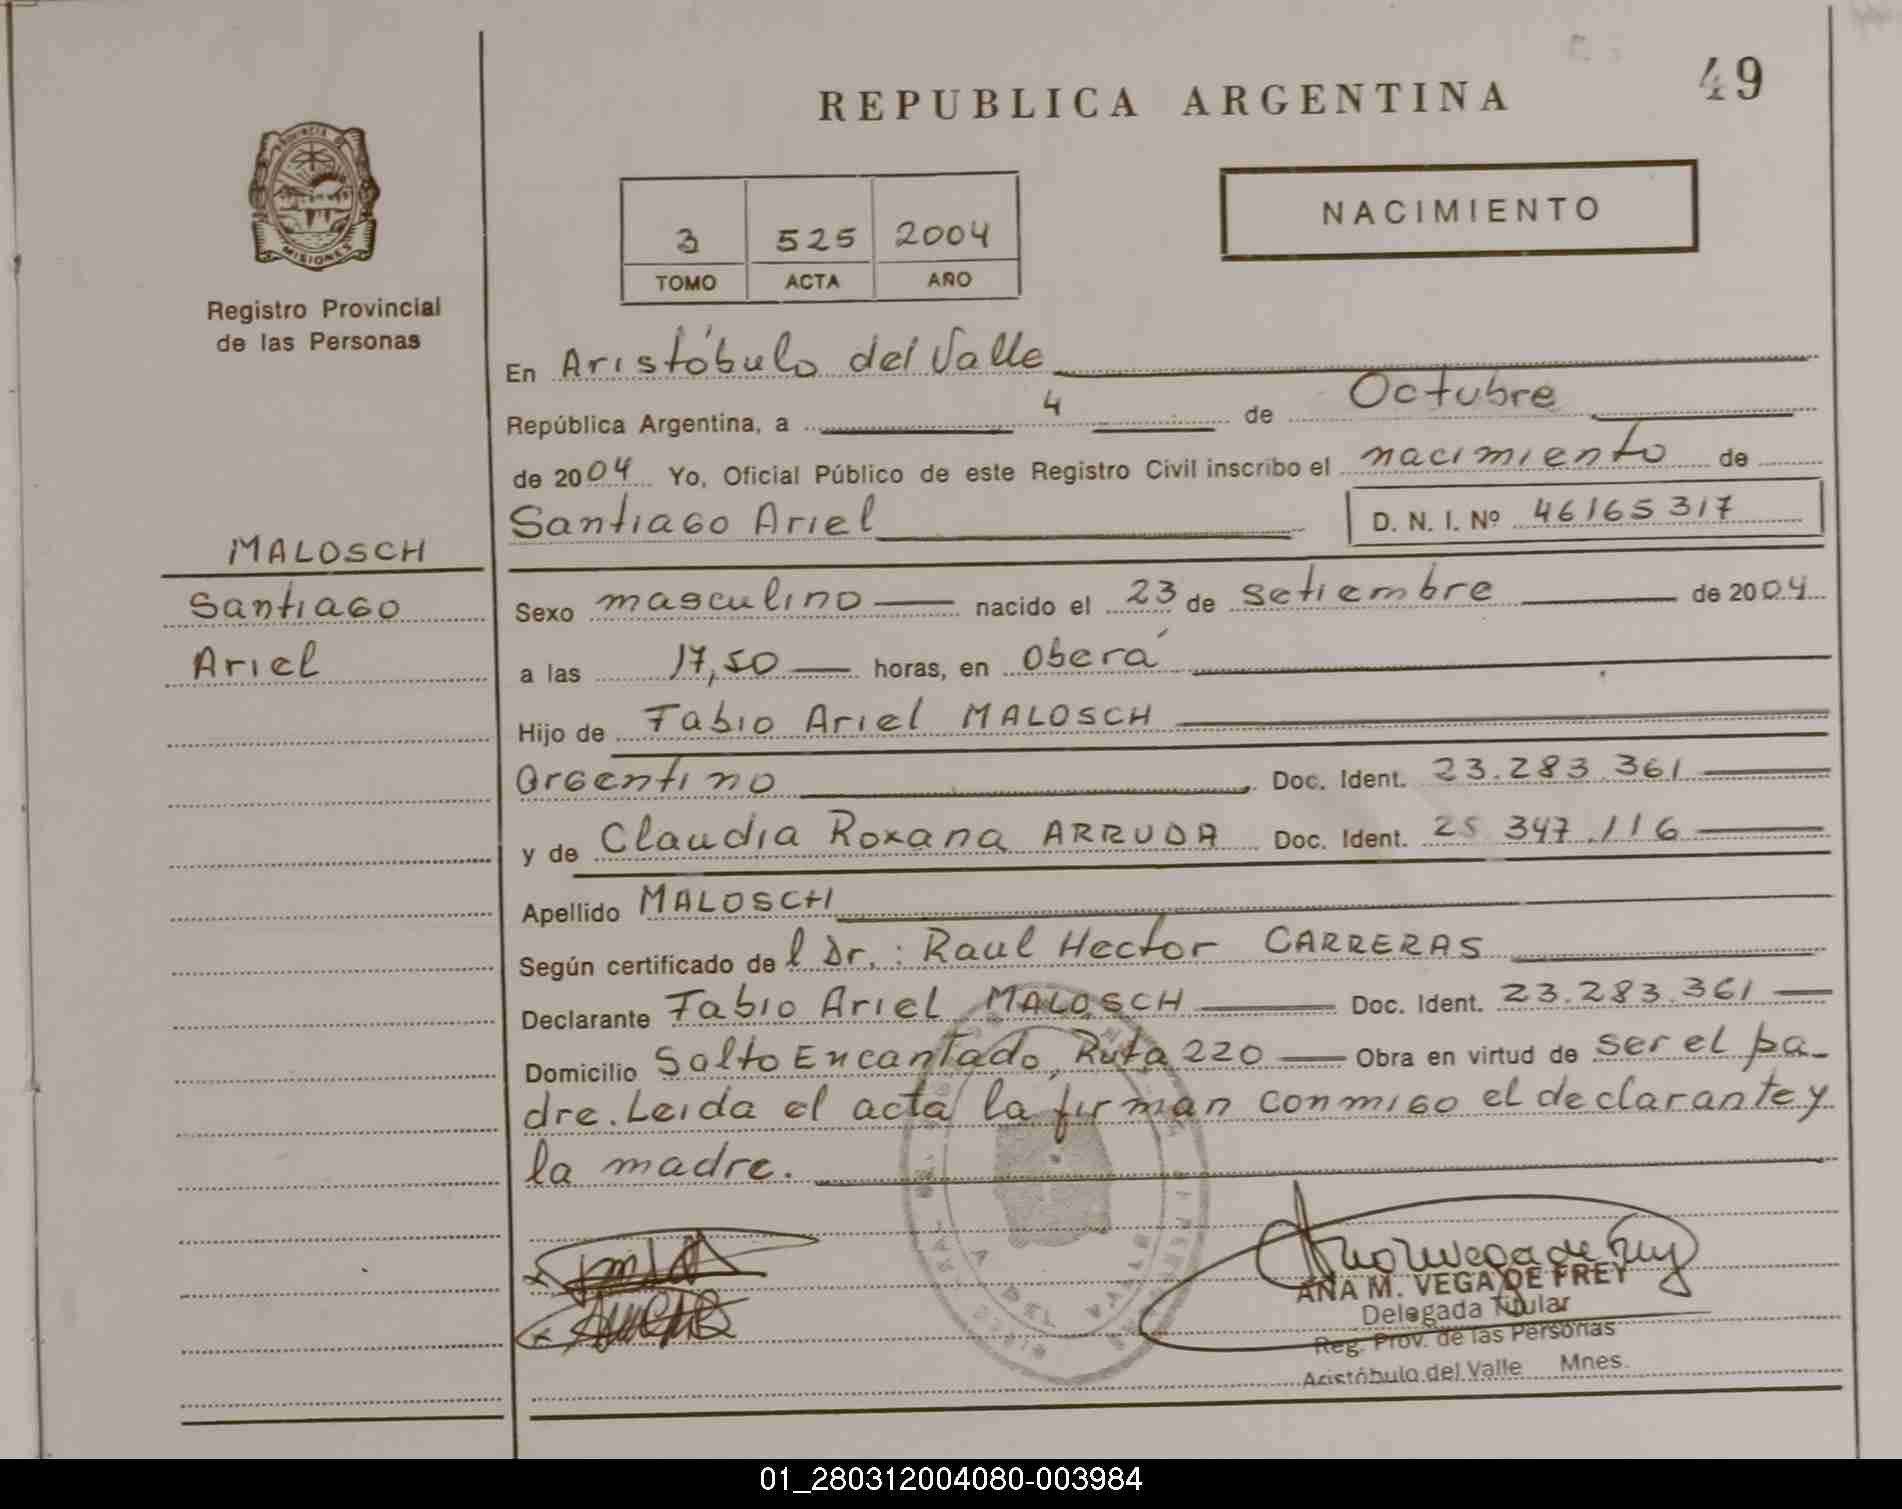 REPUBLICA ARGENTINA
49
PROVINCIA DE
MISIONES
Registro Provincial
de las Personas
3 525 2004
TOMO ACTA AÑO
NACIMIENTO
En Aristóbulo del Valle
República Argentina, a 4 de Octubre
de 2004 Yo, Oficial Público de este Registro Civil inscribo el nacimiento de
Santiago Ariel D. N. I. Nº 46165317
MALOSCH
Santiago
Ariel
Sexo masculino nacido el 23 de setiembre de 2004
a las 17,50 horas, en Oberá
Hijo de Fabio Ariel MALOSCH
argentino Doc. Ident. 23.283.361
y de Claudia Roxana ARRUDA Doc. Ident. 25 347.116
Apellido MALOSCH
Según certificado de l Dr.: Raul Hector CARRERAS
Declarante Fabio Ariel MALOSCH Doc. Ident. 23.283.361
Domicilio Salto Encantado, Ruta 220 Obra en virtud de ser el pa-
dre. Leida el acta la firman conmigo el declarante y
la madre.
ANA M. VEGA DE FREY
Delegada Titular
Reg. Prov. de las Personas
Aristóbulo del Valle Mnes.
01_280312004080-003984